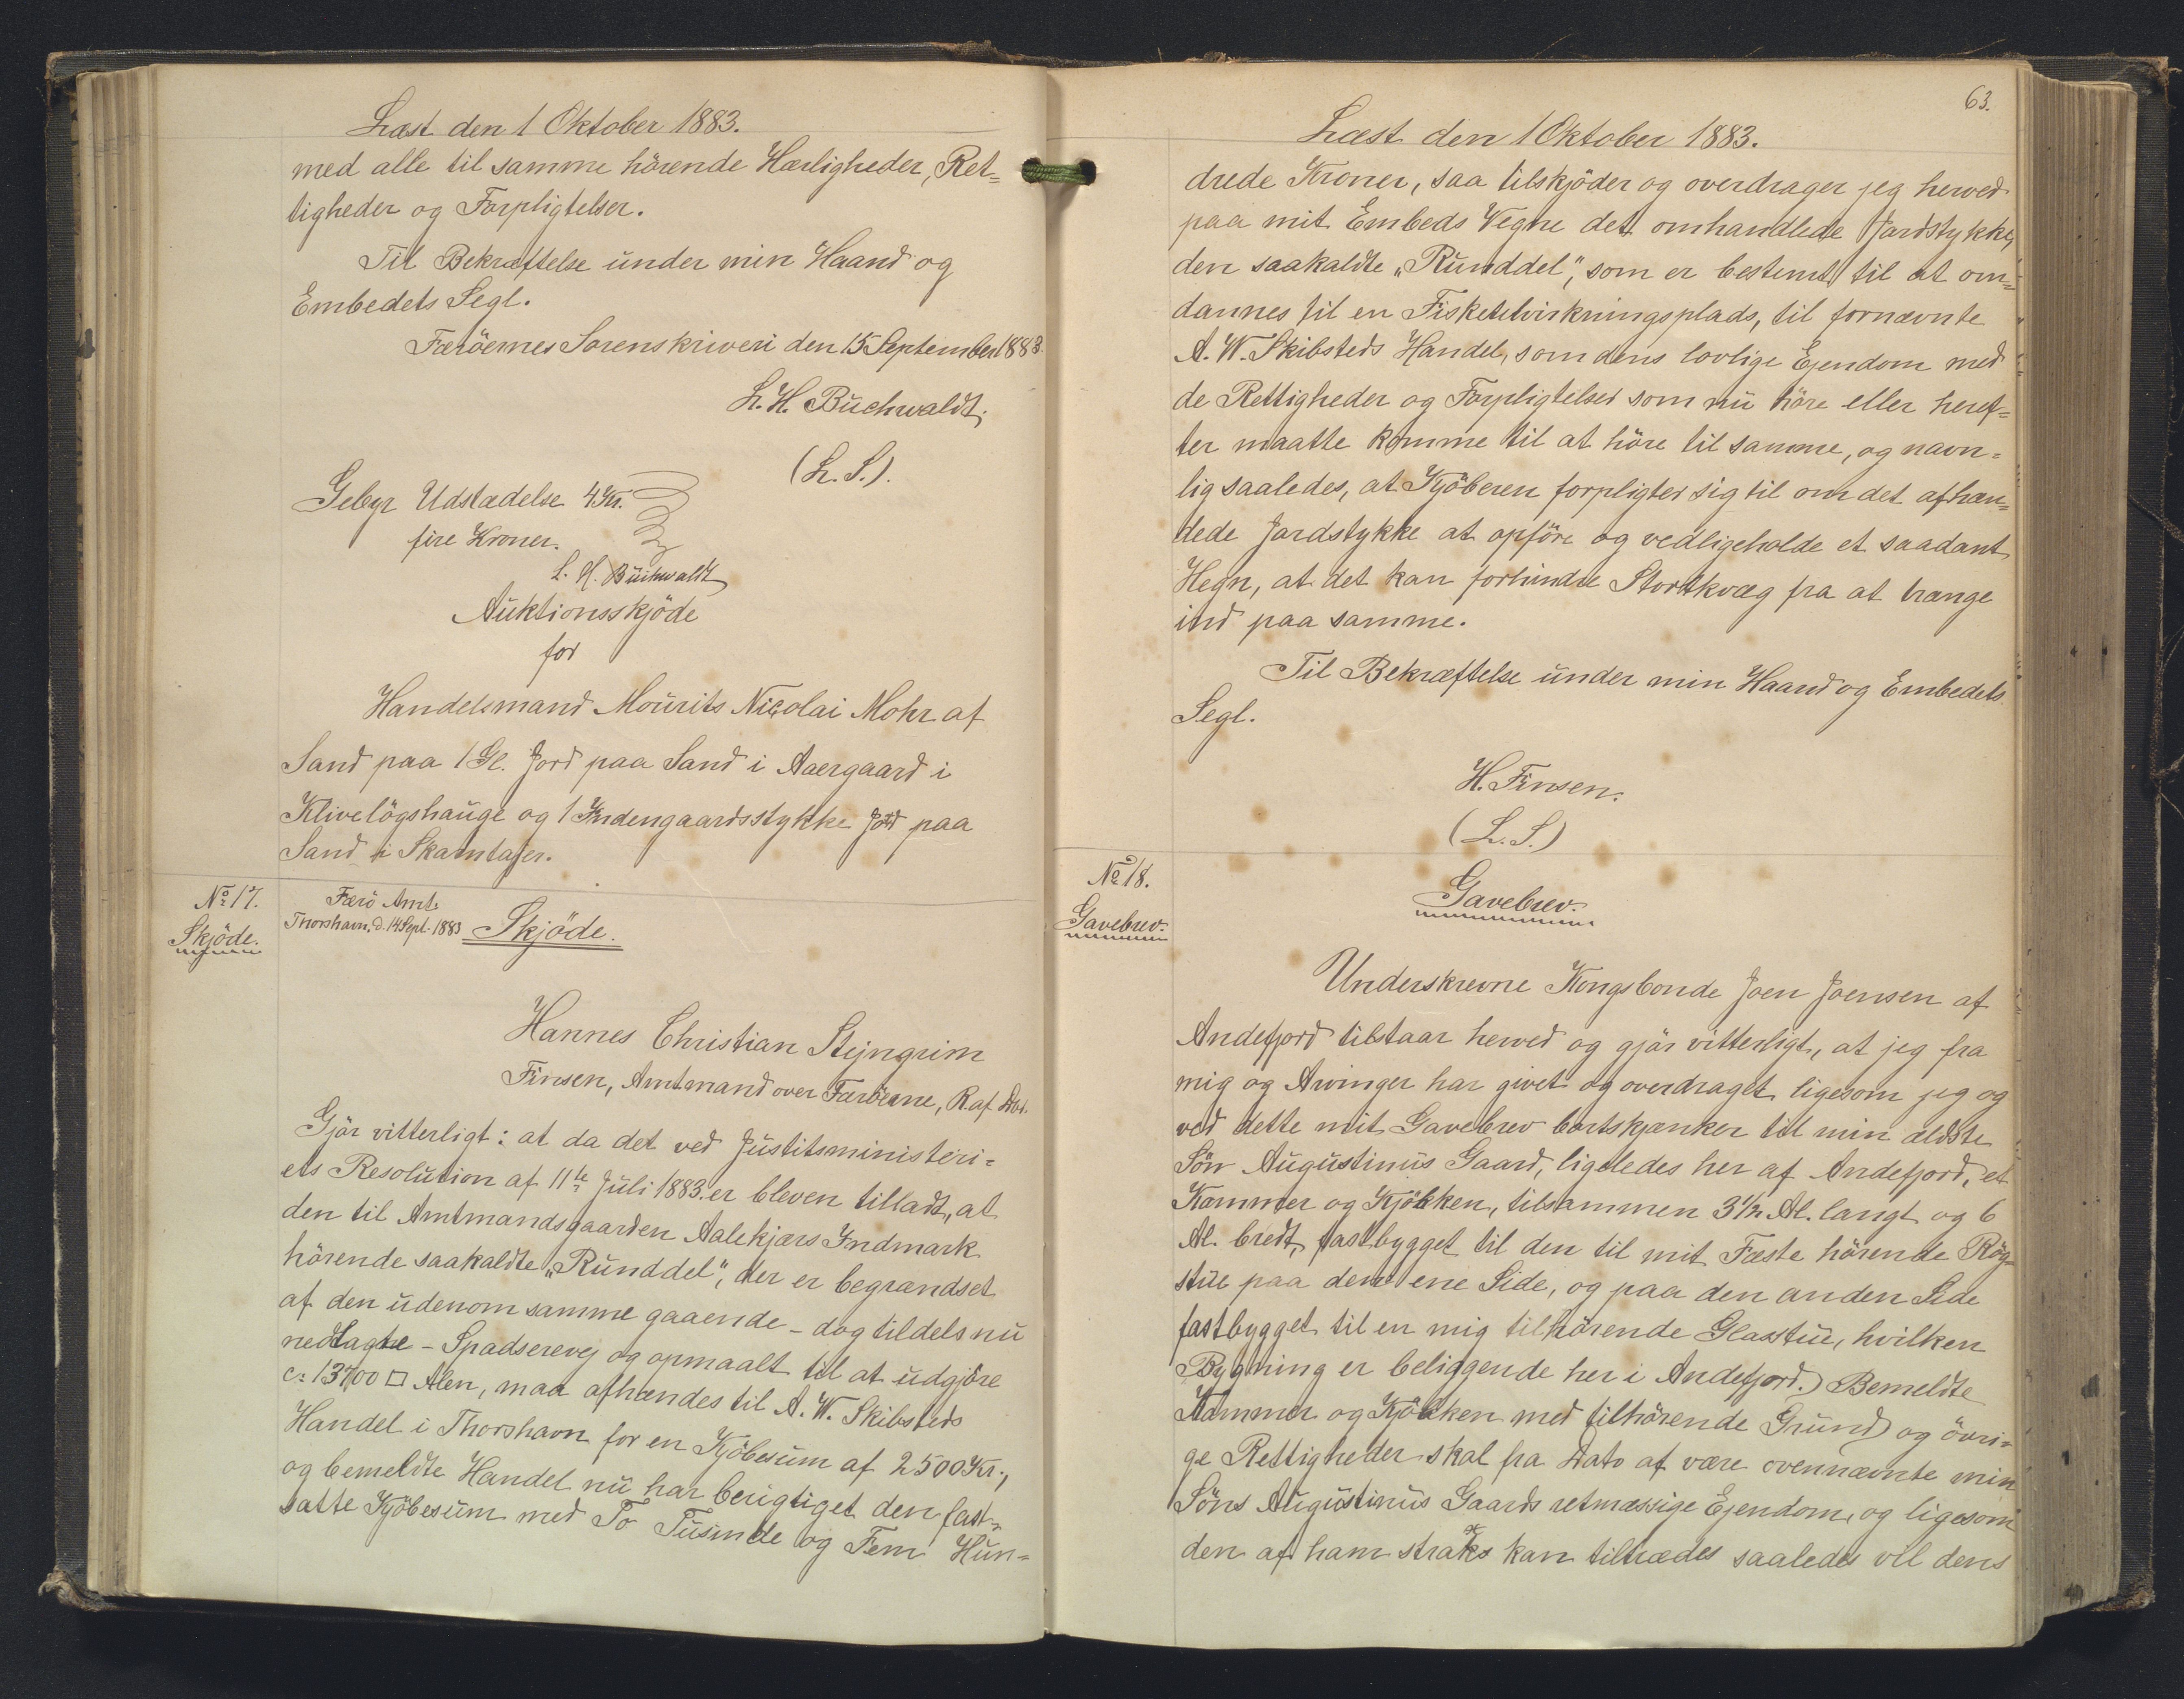 Læst den 1 Oktober 1883.
med alle til samme hörende Herligheder, Ret=
tigheder og Forpligtelser.
Til Bekræftelse under min Haand og
Embedets Segl.
Færöernes Sorenskriveri den 15 September 1883.
L. H. Buchwaldt.
(L. S.).
Gebyr Udstædelse 4 Kr.
fire Kroner.
L. H. Buchwaldt
Auktionsskjöde
for
Handelsmand Mourits Nicolai Mohr af
Sand paa 1 Gl. Jord paa Sand i Aaergaard i
Klivelögshauge og 1 Indengaardsstykke Jord paa
Sand i Skamtajer.
No 17.
Skjöde.
Færö Amt.
Thorshavn. d. 14 Sept. 1883
Skjöde.
Hannes Christian Stejngrim
Finsen, Amtmand over Færöerne, R. af Dbr.
Gjör vitterligt: at da det ved Justitsministeri=
ets Resolution af 11te Juli 1883. er bleven tilladt, at
den til Amtmandsgaarden Aalekjærs Indmark
hörende saakaldte „Runddel", der er begrændset
af den udenom samme gaaende - dog tildels nu
nedlagte - Spadserevej og opmaalt til at udgjöre
c: 13700 □ Alen, maa afhændes til A. W. Skibsteds
Handel i Thorshavn for en Kjöbesum af 2500 Kr.,
og bemeldte Handel nu har berigtiget den fast=
satte Kjöbesum med To Tusinde og Fem Hun=
63.
Læst den 1 Oktober 1883.
drede Kroner, saa tilskjöder og overdrager jeg herved
paa mit Embeds Vegne det omhandlede Jordstykke,
den saakaldte „Runddel", som er bestemt til at om=
dannes til en Fisketilvirkningsplads, til fornævnte
A. W. Skibsteds Handel, som dens lovlige Ejendom med
de Rettigheder og Forpligtelser som nu höre eller heref=
ter maatte komme til at höre til samme, og navn=
lig saaledes, at Kjöberen forpligter sig til om det afhæn=
dede Jordstykke at opföre og vedligeholde et saadant
Hegn, at det kan forhindre Stortkvæg fra at trænge
ind paa samme.
Til Bekræftelse under min Haand og Embedets
Segl.
H. Finsen.
(L. S.)
No 18.
Gavebrev.
Gavebrev.
Underskrevne Kongsbonde Joen Joensen af
Andefjord tilstaar herved og gjör vitterligt, at jeg fra
mig og Arvinger har givet og overdraget ligesom jeg og
ved dette mit Gavebrev bortskjænker til min ældste
Sön Augustinus Gaard, ligeledes her af Andefjord, et
Kammer og Kjökken, tilsammen 3 1/2 Al. langt og 6
Al. bredt, fastbygget til den til mit Fæste hörende Rög=
stue paa den ene Side, og paa den anden Side
fastbygget til en mig tilhörende Glasstue, hvilken
Bygning er beliggende her i Andefjord. Bemeldte
Kammer og Kjökken med tilhörende Grund og övri=
ge Rettigheder skal fra Dato af være ovennævnte min
Söns Augustinus Gaards retmæssige Ejendom, og ligesom
den af ham straks kan tiltrædes saaledes vil dens